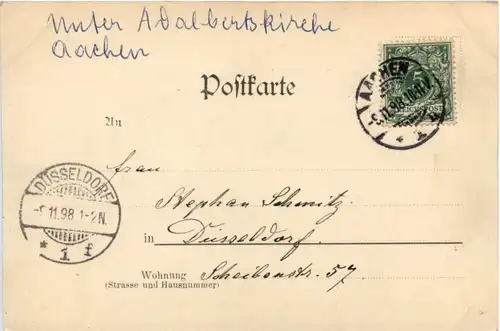 Unter Adalbertskirche
Aachen
Postkarte
AACHEN
11.98
An
Frau
DÜSSELDORF
-5.11.98 1-2N.
* 1 f
Stephan Schmitz
in Düsseldorf.
Wohnung Scheibenstr. 57
(Strasse und Hausnummer)